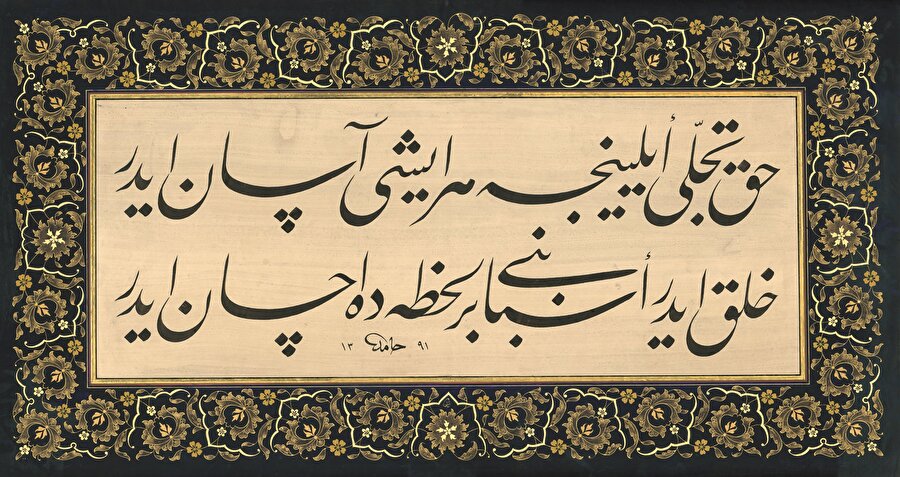 حق تجلّی أیلینجه هر ایشی آسان ایدر
خلق ایدر أسبابنی بر لحظه ده احسان ایدر
حامد ١٣٩١